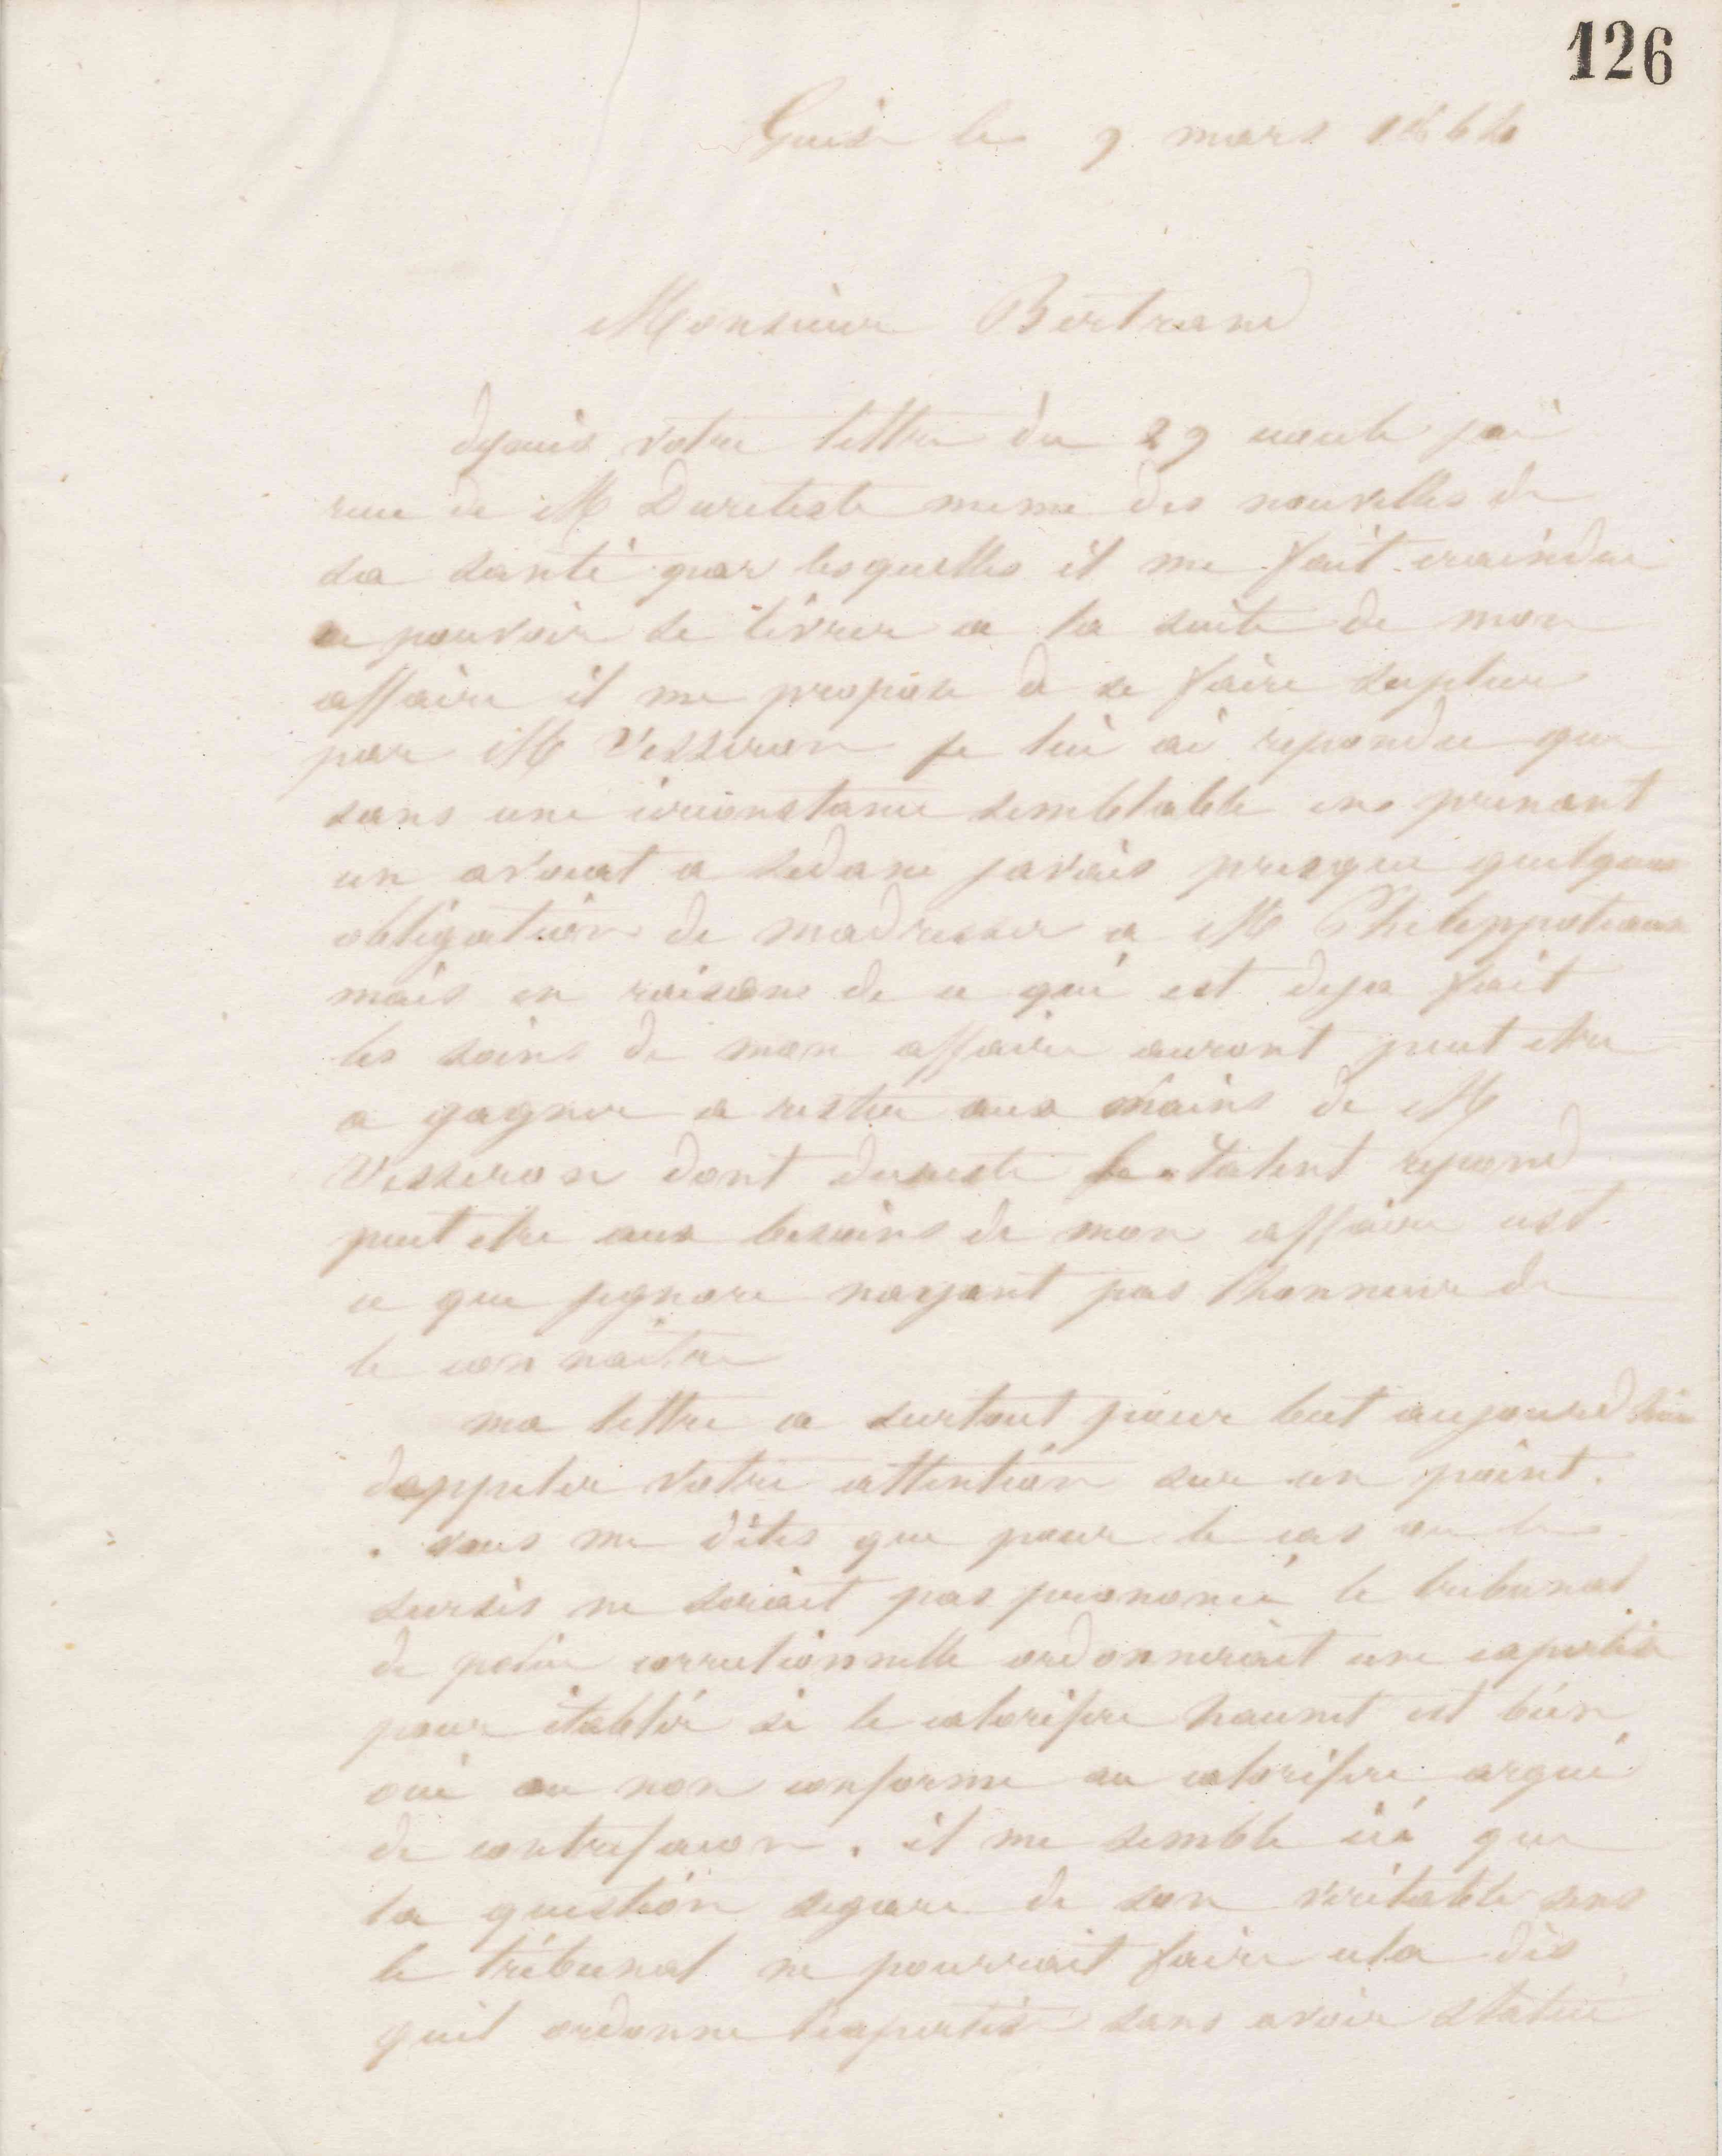 126
Guise le 9 mars 1864
Monsieur Bertrand
depuis votre lettre du 29 jai
recu de M Dureteste meme des nouvelles de
sa santé par lesquelles il me fait craindre
pouvoir se livrer a la suite de mon
affaire il me propose de se faire supleer
par M Vesseron je lui ai repondu que
dans une circonstance semblable en prenant
un avocat a sedan javais presque quelque
obligation de madresser a M Philippoteaux
mais en raison de ce qui est deja fait
les soins de mon affaire auront peut etre
a gagner a rester aux mains de M
Vesseron dont dureste le talent repond
peut etre aux besoins de mon affaire cest
ce que jignore nayant pas lhonneur de
le connaitre
ma lettre a surtout pour but aujourdhui
dappeler votre attention sur un point.
vous me dites que pour le cas ou le
sursis ne serait pas prononcé le tribunal
de police correctionnelle ordonnerait une expertise
pour établir si le calorifere est bien
oui ou non conforme au calorifere argué
de contrefacon. il me semble ici que
la question segare de son véritable sens
le tribunal ne pourrait faire cela dès
quil ordonne lexpertise sans avoir statué